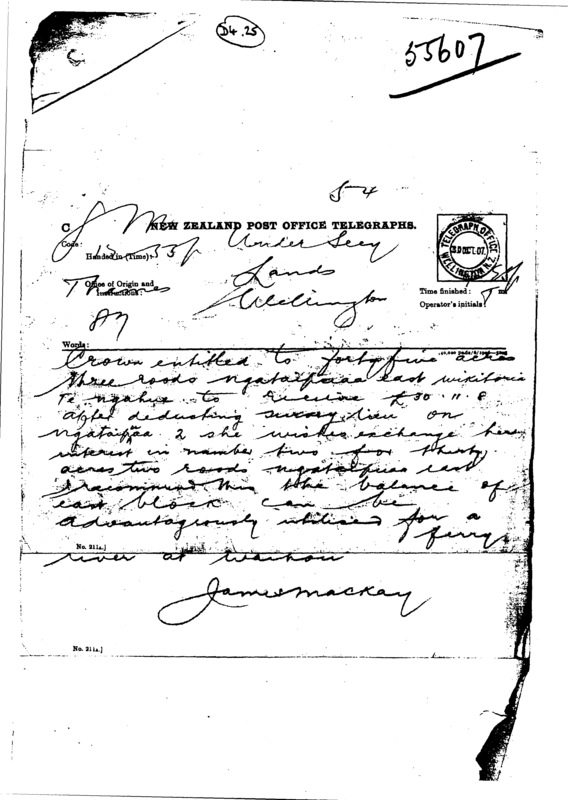 D4.25
55607
54
NEW ZEALAND POST OFFICE TELEGRAPHS.
Code:
Handed in (Time):
Under Secy
Office of Origin and
Instructions:
Thames
Lands
Wellington
TELEGRAPH OFFICE
WELLINGTON N.Z.
Time finished:
Operator's initials:
Words:
Crown entitled to forty five acres
three roods ngataipuaa east wikitoria
Te ngahue to receive £30.11.8
after deducting survey lien on
ngataipuaa 2 she wishes exchange here
interest in number two for thirty
acres two roods ngataipuaa east
I recommend this the balance of
east block can be
advantageously utilised for a
ferry
No. 211A.]
river at waihou
James Mackay
No. 211A.]